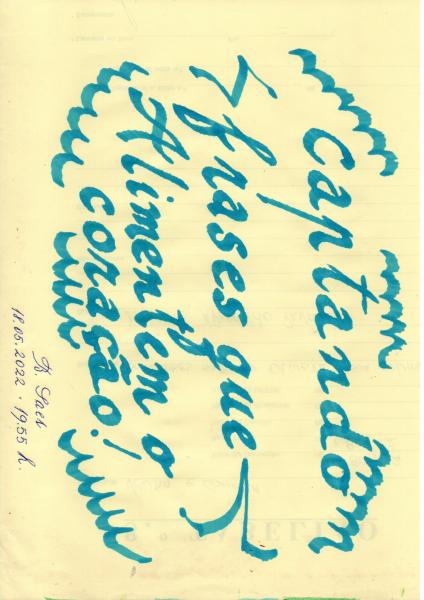 Captando
frases que
Alimentem o
coração!
Saes
18.05.2022 . 19.55 h.